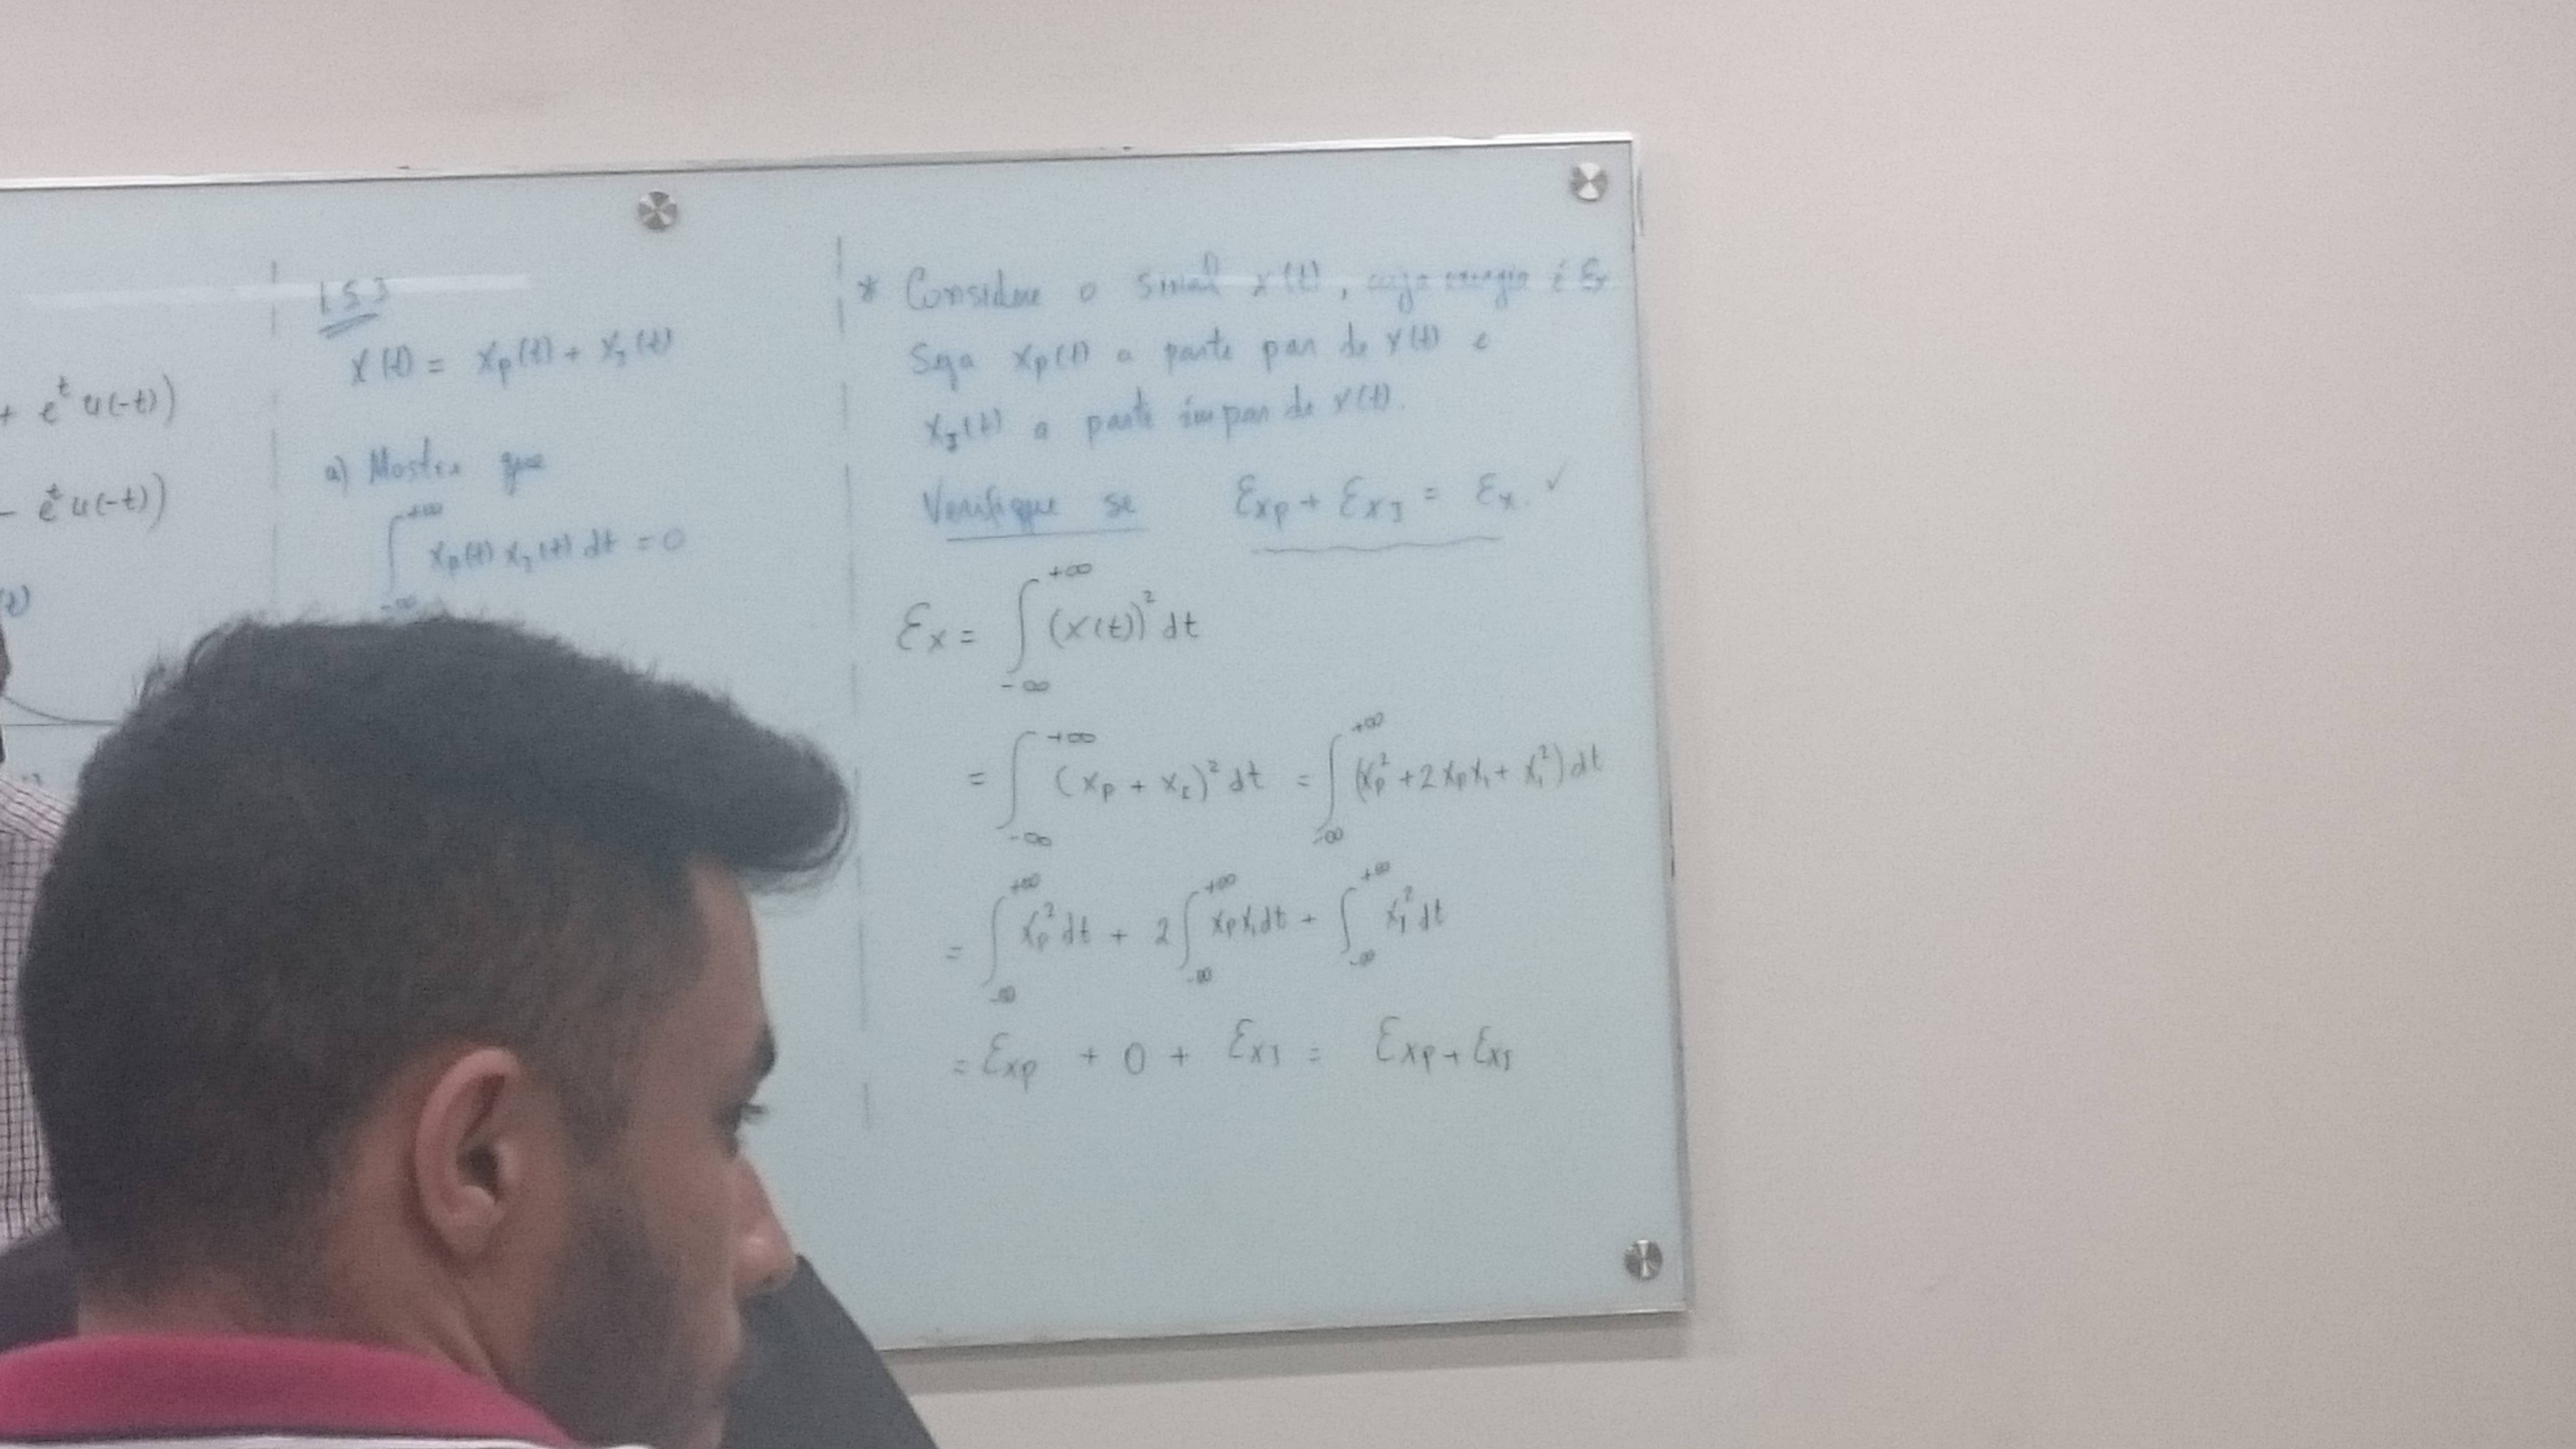 + e^t u(-t))
- e^t u(-t))
(t)
1.5.3
x(t) = xp(t) + xI(t)
a) Mostre que
∫_{-∞}^{+∞} xp(t) xI(t) dt = 0
* Considere o sinal x(t), cuja energia é Ex
Seja xp(t) a parte par de x(t) e
xI(t) a parte ímpar de x(t).
Verifique se Exp + ExI = Ex. ✓
Ex = ∫_{-∞}^{+∞} (x(t))² dt
= ∫_{-∞}^{+∞} (xp + xI)² dt = ∫_{-∞}^{+∞} (xp² + 2xpxI + xI²) dt
= ∫_{-∞}^{+∞} xp² dt + 2∫_{-∞}^{+∞} xpxI dt + ∫_{-∞}^{+∞} xI² dt
= Exp + 0 + ExI = Exp + ExI